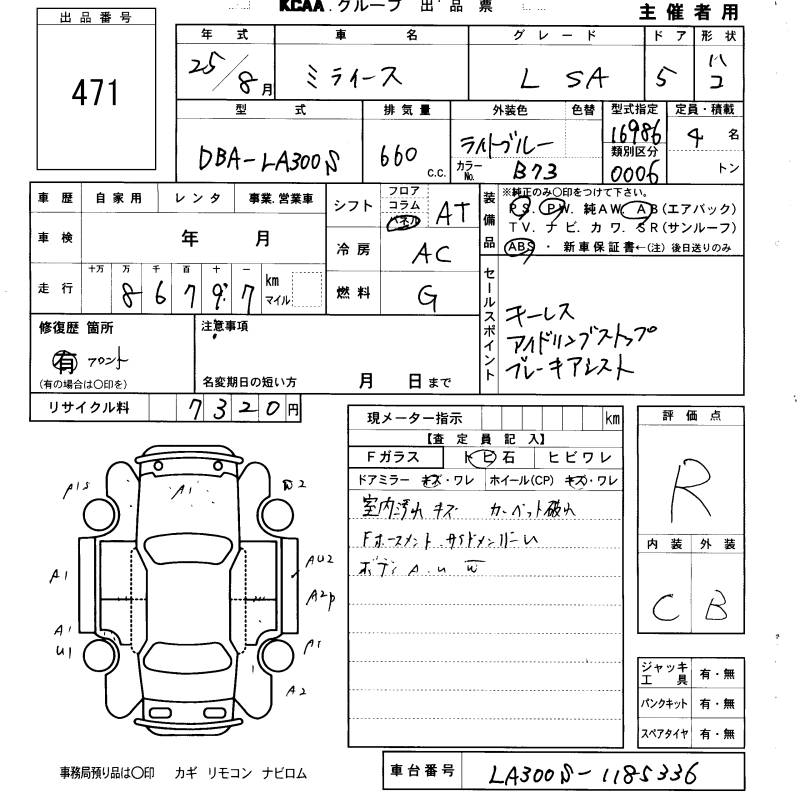 KCAA.グループ 出品票
主催者用
出品番号
471
年式 車名 グレード ドア 形状
25/8月 ミライース L SA 5 ハコ
型式 排気量 外装色 色替 型式指定 定員・積載
DBA-LA300S 660 c.c. ライトブルー 16986 4 名
カラーNo. B73 類別区分 0006 トン
車歴 自家用 レンタ 事業.営業車
シフト フロア コラム パネル AT
装備品 ※純正のみ〇印をつけて下さい。
PS. PW. 純AW. AB(エアバック)
TV. ナビ. カワ. SR(サンルーフ)
ABS ・ 新車保証書←(注) 後日送りのみ
車検 年 月
冷房 AC
走行 十万 万 千 百 十 一
8 6 7 9 7 km マイル
燃料 G
セールスポイント
キーレス
アイドリングストップ
ブレーキアシスト
修復歴 箇所
有 フロント
(有の場合は〇印を)
注意事項
名変期日の短い方 月 日まで
リサイクル料 7320円
現メーター指示 km
【査定員記入】
Fガラス トビ石 ヒビワレ
ドアミラー キズ・ワレ ホイール(CP) キズ・ワレ
室内汚れ キズ カーペット破れ
Fホースメント サイドメンバーU
ボディ A.U W
評価点
R
内装 外装
C B
A1S A1 W2
A1 AU2
A2P
A1
U1 A1
A2
ジャッキ 工具 有・無
パンクキット 有・無
スペアタイヤ 有・無
事務局預り品は〇印 カギ リモコン ナビロム
車台番号 LA300S-1185336